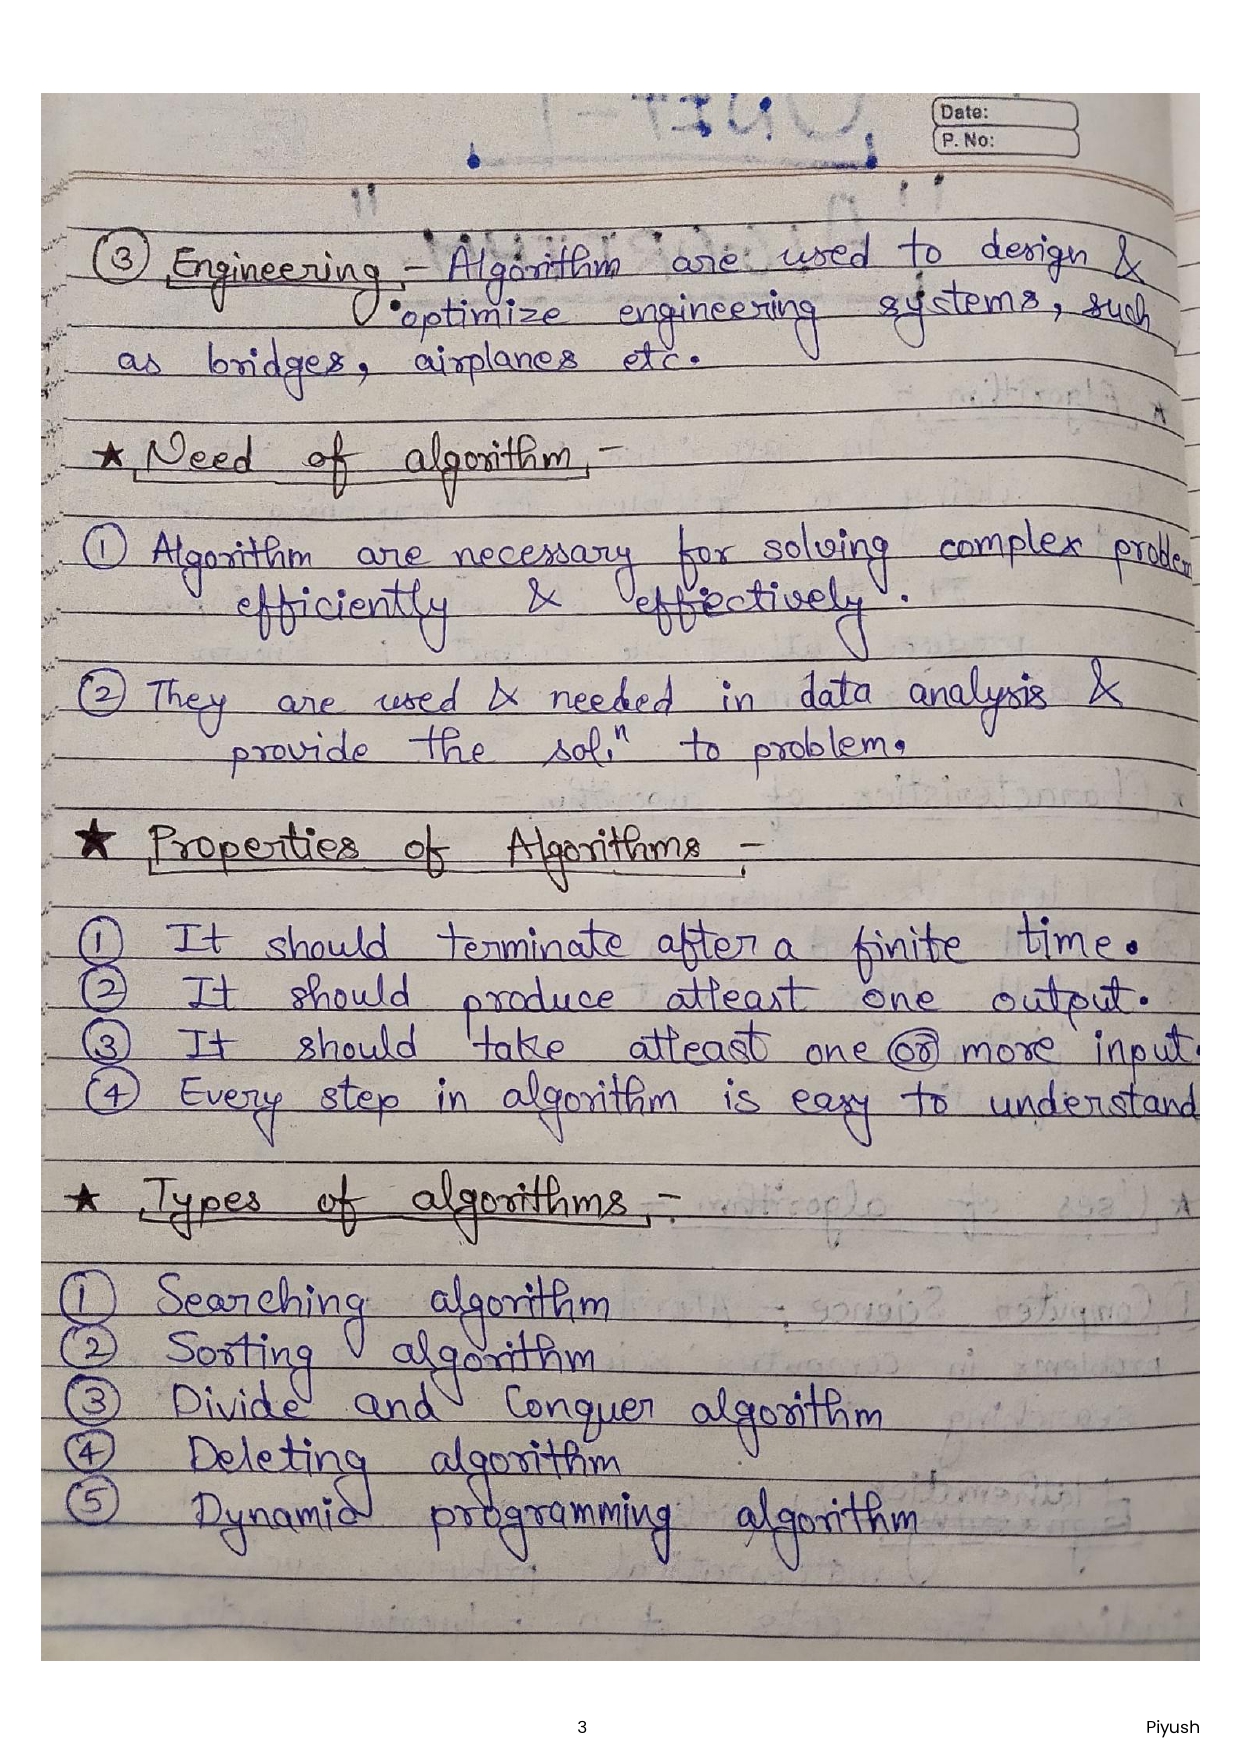 Date:
P. No:
③ Engineering - Algorithm are used to design &
optimize engineering systems, such
as bridges, airplanes etc.
★ Need of algorithm -
① Algorithm are necessary for solving complex problem
efficiently & effectively.
② They are used & needed in data analysis &
provide the solⁿ to problem.
★ Properties of Algorithms -
① It should terminate after a finite time.
② It should produce atleast one output.
③ It should take atleast one or more input.
④ Every step in algorithm is easy to understand
★ Types of algorithms -
① Searching algorithm
② Sorting algorithm
③ Divide and Conquer algorithm
④ Deleting algorithm
⑤ Dynamic programming algorithm
3
Piyush